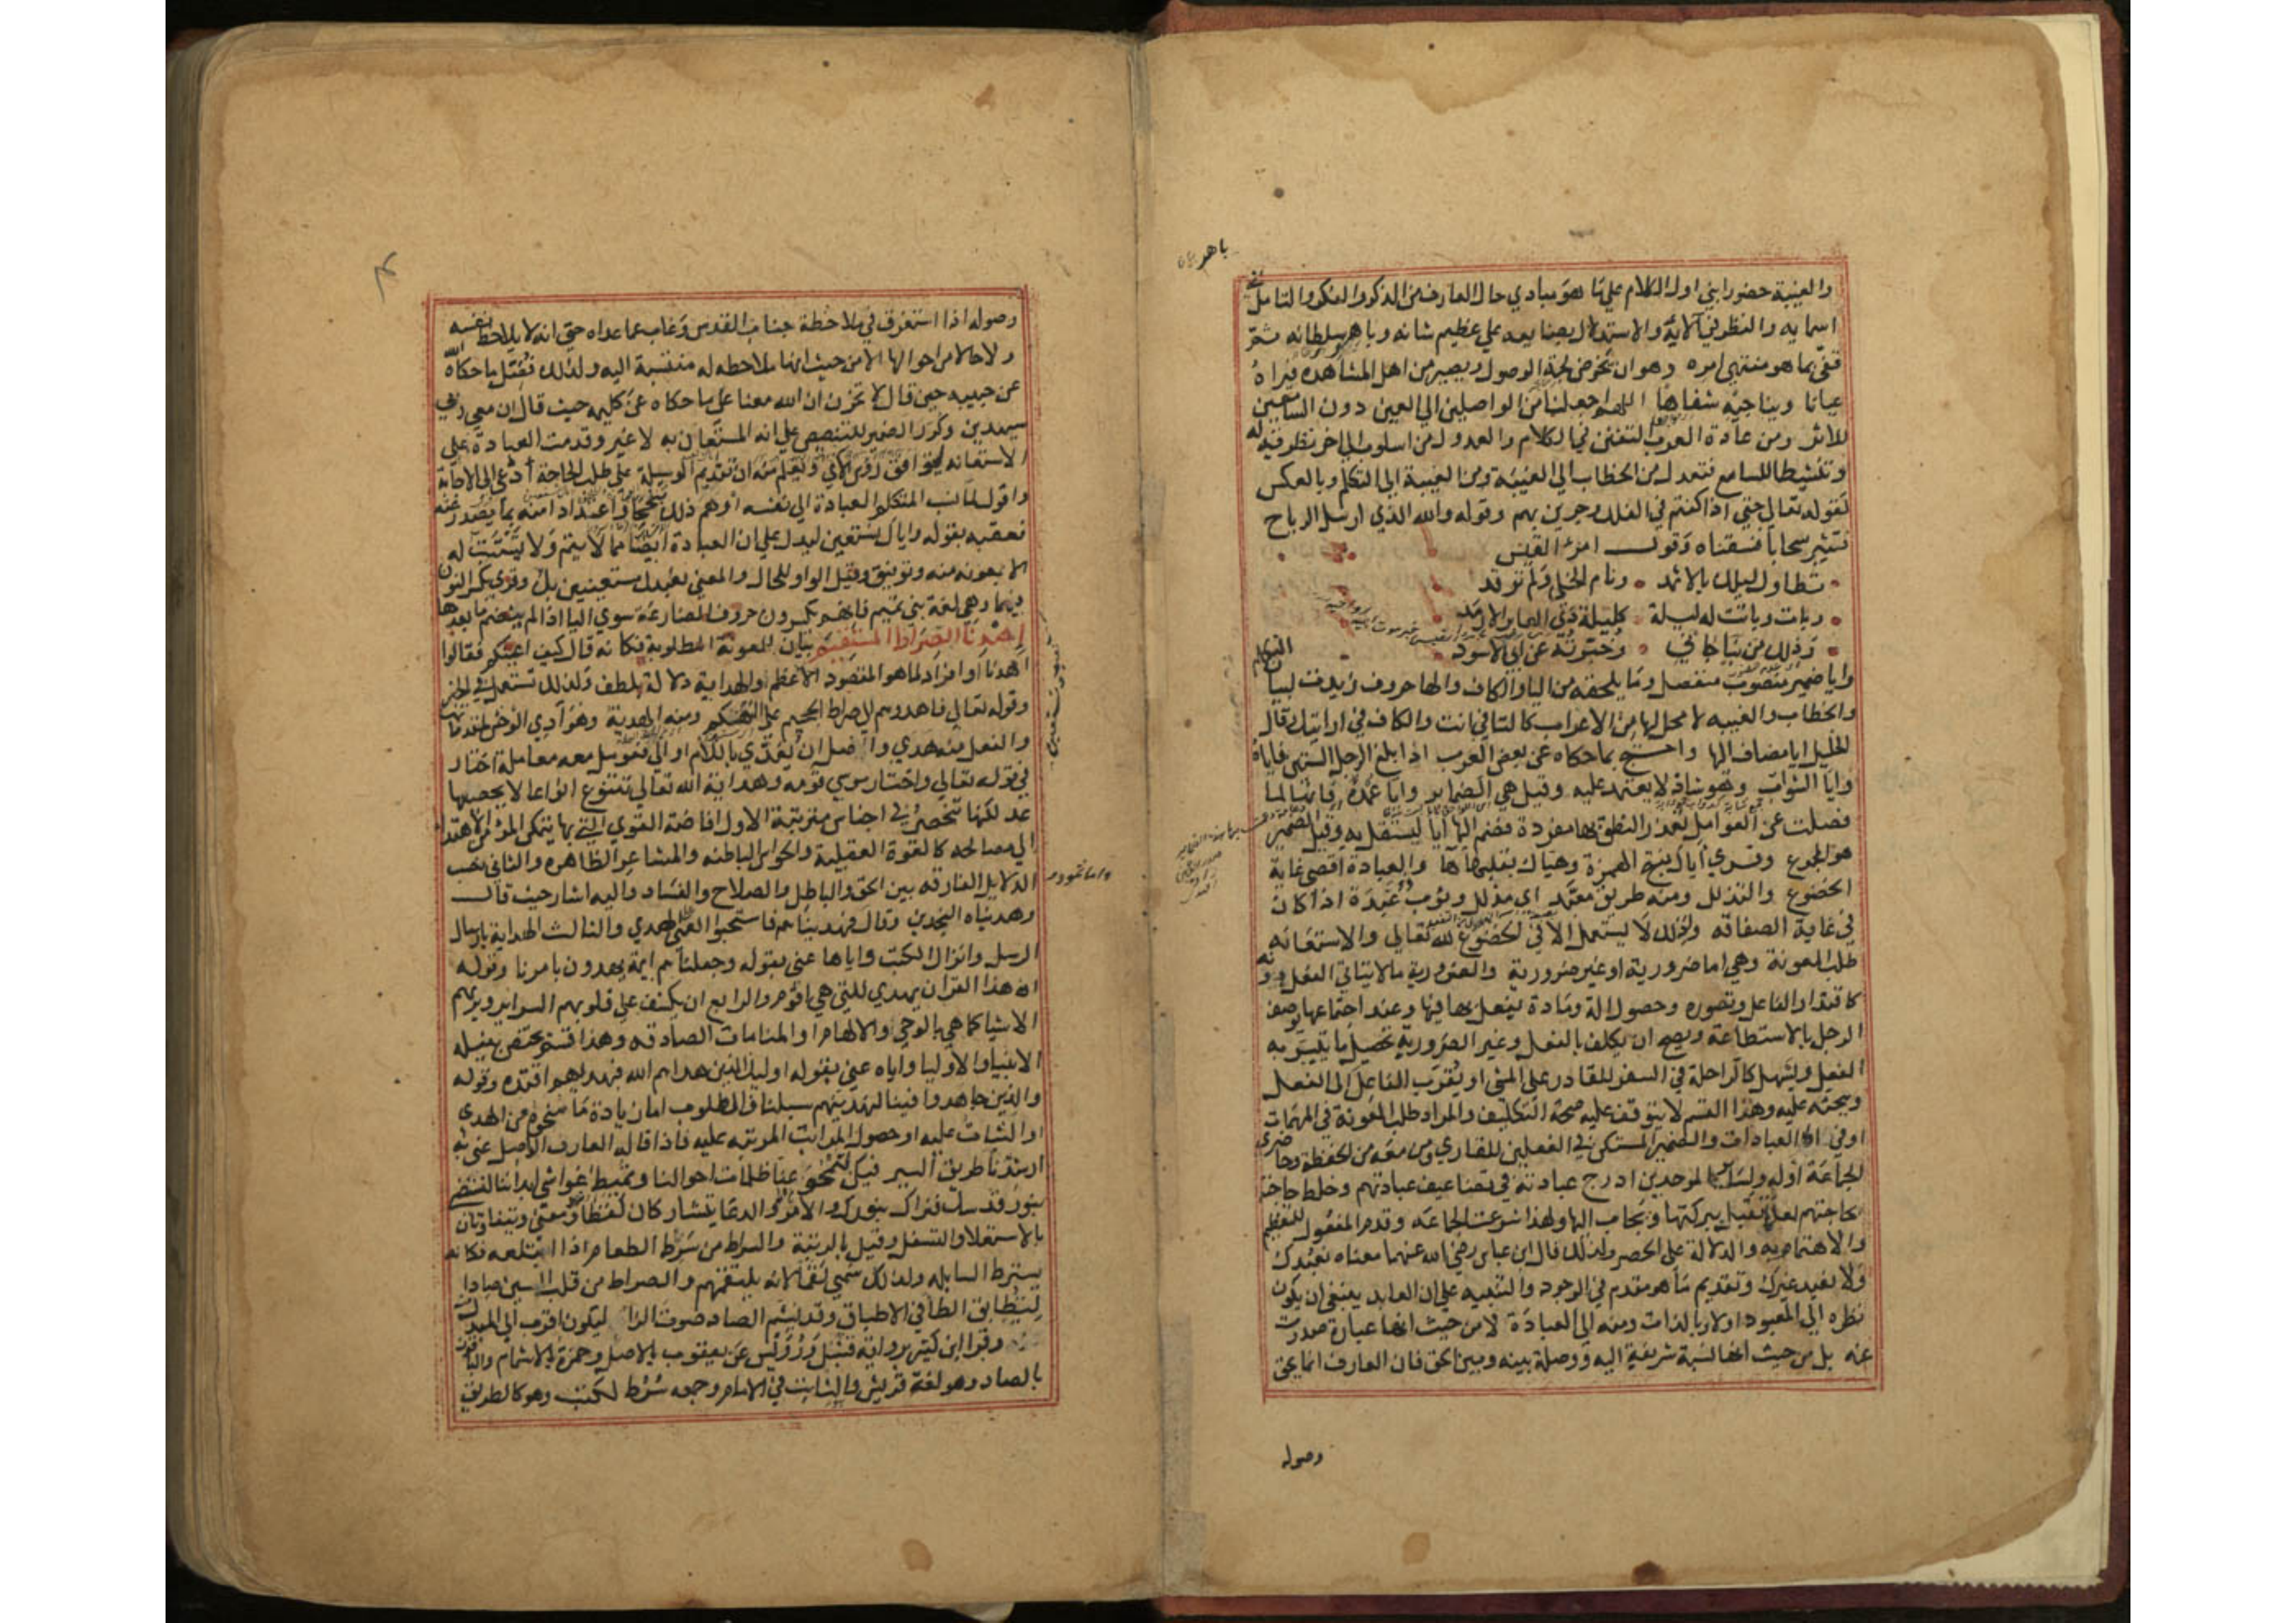 والغيبة حضورا بني اول الكلام على ما هو مبادي حال العارف من الذكر والفكر والتامل في
اسمايه والنظر في آلايه والاستدلال بصنايعه على عظيم شانه وباهر سلطانه ثم
قفى بما هو منتهى امره وهو ان يخوض لجة الوصول ويصير من اهل المشاهدة فيراه
عيانا ويناجيه شفاها اللهم اجعلنا من الواصلين الى العين دون السامعين
للاثر ومن عادة العرب التفنن في الكلام والعدول من اسلوب الى اخر تطرية له
وتنشيطا للسامع فتعدل من الخطاب الى الغيبة ومن الغيبة الى التكلم وبالعكس
كقوله تعالى حتى اذا كنتم في الفلك وجرين بهم وقوله والله الذي ارسل الرياح
فتثير سحابا فسقناه وقول امرء القيس
تطاول ليلك بالاثمد ونام الخلي ولم ترقد
وبات وباتت له ليلة كليلة ذي العاير الارمد
وذلك من نبا جاني وخبرته عن ابي الاسود
وايا ضمير منصوب منفصل وما يلحقه من اليا والكاف والها حروف زيدت لبيان التكلم
والخطاب والغيبه لا محل لها من الاعراب كالتا في انت والكاف في ارايتك وقال
الخليل ايا مضاف الها واحتج بما حكاه عن بعض العرب اذا بلغ الرجل الستين فاياه
وايا الشواب وهو شاذ لا يعتمد عليه وقيل هي الضماير وايا عمدة فانها لما
فصلت عن العوامل تعذر النطق بها مفردة فضم الها ايا ليستقل به وقيل الضمير
هو المجموع وقري اياك بفتح الهمزة وهياك بقلبها ها والعبادة اقصى غاية
الخضوع والتذلل ومنه طريق معبد اي مذلل وثوب ذو عبدة اذا كان
في غاية الصفاقه ولذلك لا يستعمل الا في الخضوع لله تعالى والاستعانه
طلب المعونة وهي اما ضرورية او غير ضرورية والضرورية ما لا يتاتى الفعل دونه
كاقتدار الفاعل وتصوره وحصول الة ومادة يفعل بها فيها وعند اجتماعها يوصف
الرجل بالاستطاعة ويصح ان يكلف بالفعل وغير الضرورية تحصيل ما يتيسر به
الفعل ويسهل كالراحلة في السفر للقادر على المشي او يقرب الفاعل الى الفعل
ويحثه عليه وهذا القسم لا يتوقف عليه صحة التكليف والمراد طلب المعونة في المهمات
او في العبادات والضمير المستكن في الفعلين للقاري ومن معه من الحفظة وحاضري
الجماعة او له ولساير الموحدين ادرج عبادته في تضاعيف عبادتهم وخلط حاجته
بحاجتهم لعلها تقبل ببركتها ويجاب الها ولهذا شرعت الجماعه وقدم المفعول للتعظيم
والاهتمام به والدلالة على الحصر ولذلك قال ابن عباس رضي الله عنهما معناه نعبدك
ولا نعبد غيرك وتقديم ما هو مقدم في الوجود والتنبيه على ان العابد ينبغي ان يكون
نظره الى المعبود اولا وبالذات ومنه الى العبادة لا من حيث انها عبادة صدرت
عنه بل من حيث انها نسبة شريفة اليه ووصلة بينه وبين الحق فان العارف انما يحق
وصوله
وصوله اذا استغرق في ملاحظة جناب القدس وغاب عما عداه حتى انه لا يلاحظ نفسه
ولا حالا من احوالها الا من حيث انها ملاحظه له منتسبة اليه ولذلك فضل ما حكاه الله
عن حبيبه حين قال لا تحزن ان الله معنا على ما حكاه عن كليمه حيث قال ان معي ربي
سيهدين وكرر الضمير للتنصيص على انه المستعان به لا غير وقدمت العبادة على
الاستعانه ليتوافق روس الاي ويعلم منه ان تقديم الوسيلة على طلب الحاجة ادعى الى الاجابة
واقول لما نسب المتكلم العبادة الى نفسه اوهم ذلك تبجحا واعتدادا منه بما يصدر عنه
فعقبه بقوله واياك نستعين ليدل على ان العبادة ايضا مما لا يتم ولا يستتب له
الا بمعونه منه وتوفيق وقيل الواو للحال والمعنى نعبدك مستعينين بك وقري بكسر النون
فيهما وهي لغة بني تميم فانهم يكسرون حروف المضارعة سوى اليا اذا لم ينضم ما بعدها
اهدنا الصراط المستقيم بيان للمعونة المطلوبة فكانه قال كيف اعينكم فقالوا
اهدنا او افراد لما هو المقصود الاعظم والهداية دلالة بلطف ولذلك تستعمل في الخير
وقوله تعالى فاهدوهم الى صراط الجحيم على التهكم ومنه الهدية وهوادي الوحش لمقدماتها
والفعل منه هدي واصل ان يعدى باللام او الى فعومل معه معاملة اختار
في قوله تعالى واختار موسى قومه وهداية الله تعالى تتنوع انواعا لا يحصيها
عد لكنها تنحصر في اجناس مترتبة الاول افاضة القوي التي بها يتمكن المرؤ من الاهتدا
الى مصالحه كالقوة العقلية والحواس الباطنه والمشاعر الظاهره والثاني نصب
الدلايل الفارقه بين الحق والباطل والصلاح والفساد واليه اشار حيث قال
وهديناه النجدين وقال فهديناهم فاستحبوا العمى على الهدي والثالث الهداية بارسال
الرسل وانزال الكتب واياها عنى بقوله وجعلناهم ايمة يهدون بامرنا وقوله
ان هذا القران يهدي للتي هي اقوم والرابع ان يكشف على قلوبهم السراير ويريهم
الاشيا كما هي بالوحي والالهام او المنامات الصادقه وهذا قسم يختص بنيله
الانبيا والاوليا واياه عنى بقوله اوليك الذين هداهم الله فبهداهم اقتده وقوله
والذين جاهدوا فينا لنهدينهم سبلنا فالمطلوب اما زيادة ما منحوه من الهدى
او الثبات عليه او حصول المراتب المرتبه عليه فاذا قاله العارف الواصل عنى به
ارشدنا طريق السير فيك لتمحو عنا ظلمات احوالنا وتميط غواشي ابداننا لنستضي
بنور قدسك فنراك بنورك والامر والدعا يتشاركان لفظا ومعنى ويتفاوتان
بالاستعلا والتسفل وقيل بالرتبة والسراط من سرط الطعام اذا ابتلعه فكانه
يسترط السابله ولذلك سمي لقما لانه يلتقمهم والصراط من قلب السين صادا
ليطابق الطا في الاطباق وقد يشم الصاد صوت الزا ليكون اقرب الى المبدل منه
وقرا ابن كثير برواية قنبل ورويس عن يعقوب بالاصل وحمزة بالاشمام والباقون
بالصاد وهو لغة قريش والثابت في الامام وجمعه سرط ككتب وهو كالطريق